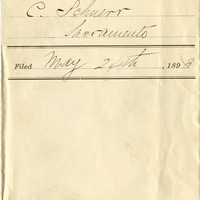 C. Schnerr
Sacramento
Filed May 24th, 1898